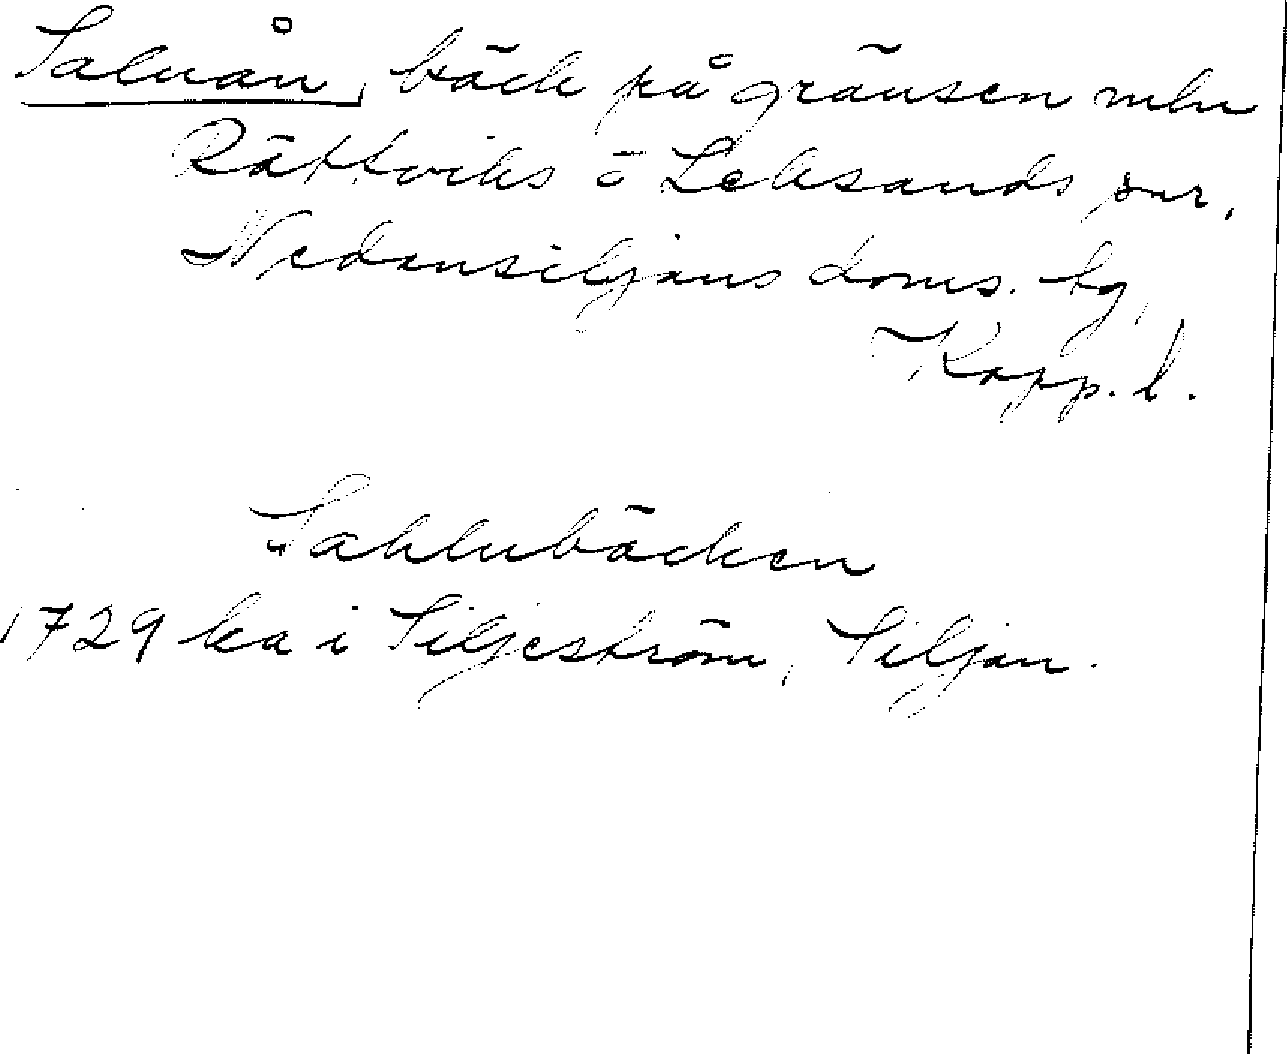 Saluån, bäck på gränsen mln
Rättviks o Leksands snr,
Nedansiljans doms. tg,
Kopp. l.
Sahlubäcken
1729 ka i Siljeström, Siljan.